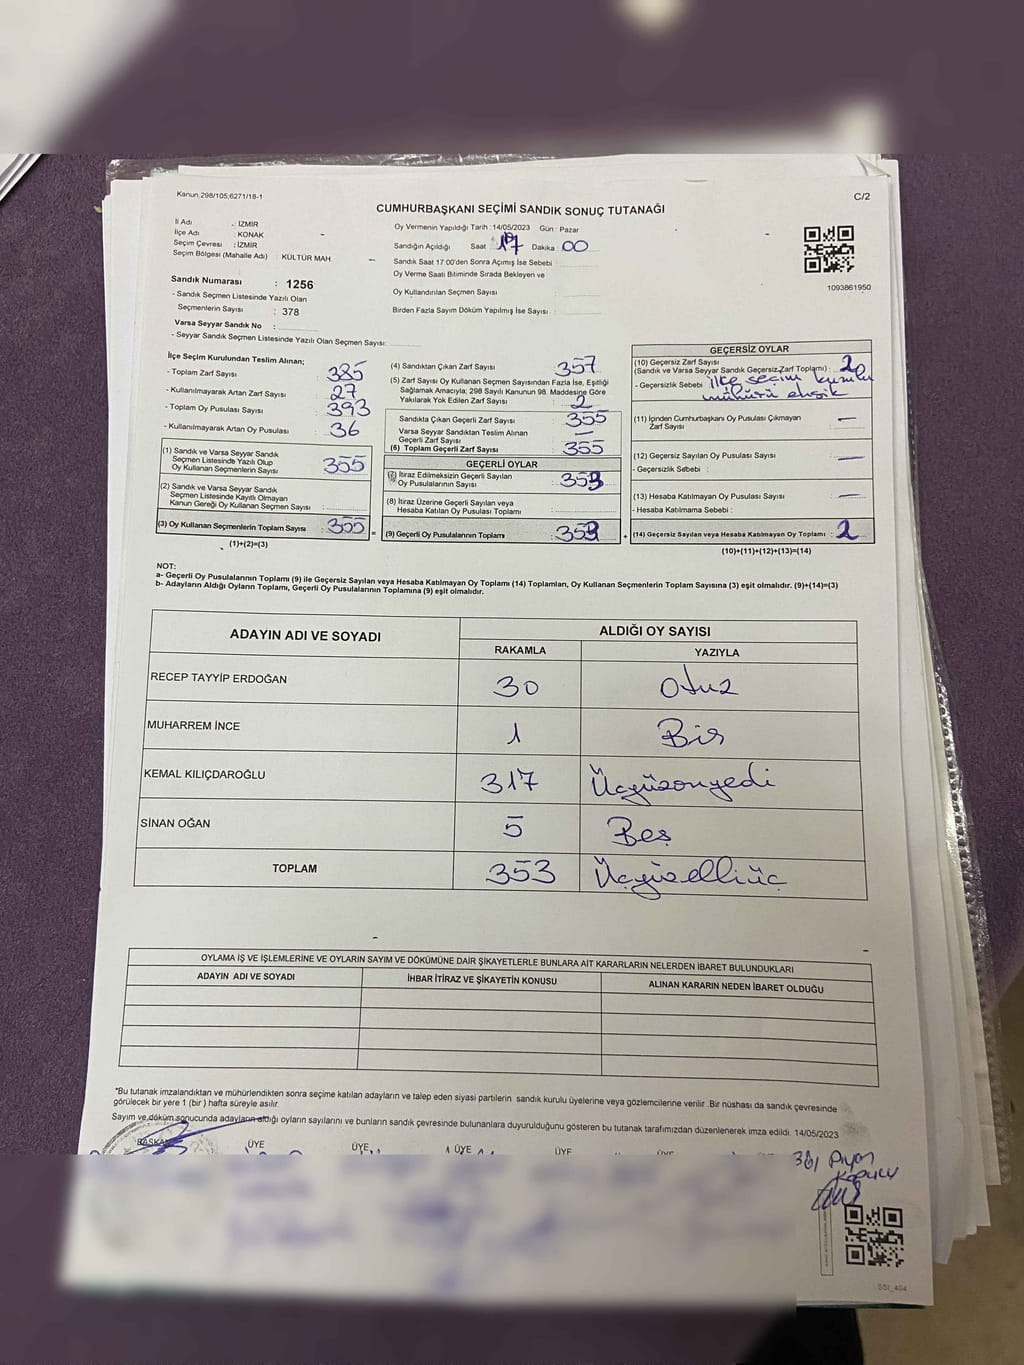 Kanun:298/105;6271/18-1
C/2
CUMHURBAŞKANI SEÇİMİ SANDIK SONUÇ TUTANAĞI
İl Adı : İZMİR
İlçe Adı : KONAK
Seçim Çevresi : İZMİR
Seçim Bölgesi (Mahalle Adı) : KÜLTÜR MAH.
Oy Vermenin Yapıldığı Tarih :14/05/2023 Gün : Pazar
Sandığın Açıldığı Saat 17 Dakika 00
Sandık Saat 17:00'den Sonra Açımış İse Sebebi :
Oy Verme Saati Bitiminde Sırada Bekleyen ve
Oy Kullandırılan Seçmen Sayısı :
Birden Fazla Sayım Döküm Yapılmış İse Sayısı :
1093861950
Sandık Numarası : 1256
- Sandık Seçmen Listesinde Yazılı Olan
Seçmenlerin Sayısı : 378
Varsa Seyyar Sandık No :
- Seyyar Sandık Seçmen Listesinde Yazılı Olan Seçmen Sayısı:
İlçe Seçim Kurulundan Teslim Alınan;
- Toplam Zarf Sayısı : 385
- Kullanılmayarak Artan Zarf Sayısı : 27
- Toplam Oy Pusulası Sayısı : 393
- Kullanılmayarak Artan Oy Pusulası : 36
(1) Sandık ve Varsa Seyyar Sandık
Seçmen Listesinde Yazılı Olup
Oy Kullanan Seçmenlerin Sayısı : 355
(2) Sandık ve Varsa Seyyar Sandık
Seçmen Listesinde Kayıtlı Olmayan
Kanun Gereği Oy Kullanan Seçmen Sayısı :
(3) Oy Kullanan Seçmenlerin Toplam Sayısı : 355 =
(1)+(2)=(3)
(4) Sandıktan Çıkan Zarf Sayısı : 357
(5) Zarf Sayısı Oy Kullanan Seçmen Sayısından Fazla İse, Eşitliği
Sağlamak Amacıyla, 298 Sayılı Kanunun 98. Maddesine Göre
Yakılarak Yok Edilen Zarf Sayısı : 2
Sandıkta Çıkan Geçerli Zarf Sayısı : 355
Varsa Seyyar Sandıktan Teslim Alınan
Geçerli Zarf Sayısı : —
(6) Toplam Geçerli Zarf Sayısı : 355
GEÇERLİ OYLAR
(7) İtiraz Edilmeksizin Geçerli Sayılan
Oy Pusulalarının Sayısı : 353
(8) İtiraz Üzerine Geçerli Sayılan veya
Hesaba Katılan Oy Pusulası Toplamı :
(9) Geçerli Oy Pusulalarının Toplamı : 353 +
GEÇERSİZ OYLAR
(10) Geçersiz Zarf Sayısı
(Sandık ve Varsa Seyyar Sandık Geçersiz Zarf Toplamı) : 2
- Geçersizlik Sebebi : ilçe seçim kurulu
mühürü eksik
(11) İçinden Cumhurbaşkanı Oy Pusulası Çıkmayan
Zarf Sayısı : —
(12) Geçersiz Sayılan Oy Pusulası Sayısı : —
- Geçersizlik Sebebi :
(13) Hesaba Katılmayan Oy Pusulası Sayısı : —
- Hesaba Katılmama Sebebi :
(14) Geçersiz Sayılan veya Hesaba Katılmayan Oy Toplamı : 2
(10)+(11)+(12)+(13)=(14)
NOT:
a- Geçerli Oy Pusulalarının Toplamı (9) ile Geçersiz Sayılan veya Hesaba Katılmayan Oy Toplamı (14) Toplamları, Oy Kullanan Seçmenlerin Toplam Sayısına (3) eşit olmalıdır. (9)+(14)=(3)
b- Adayların Aldığı Oyların Toplamı, Geçerli Oy Pusulalarının Toplamına (9) eşit olmalıdır.
ADAYIN ADI VE SOYADI ALDIĞI OY SAYISI
RAKAMLA YAZIYLA
RECEP TAYYİP ERDOĞAN 30 Otuz
MUHARREM İNCE 1 Bir
KEMAL KILIÇDAROĞLU 317 Üçyüzonyedi
SİNAN OĞAN 5 Beş
TOPLAM 353 Üçyüzelliüç
OYLAMA İŞ VE İŞLEMLERİNE VE OYLARIN SAYIM VE DÖKÜMÜNE DAİR ŞİKAYETLERLE BUNLARA AİT KARARLARIN NELERDEN İBARET BULUNDUKLARI
ADAYIN ADI VE SOYADI İHBAR İTİRAZ VE ŞİKAYETİN KONUSU ALINAN KARARIN NEDEN İBARET OLDUĞU
*Bu tutanak imzalandıktan ve mühürlendikten sonra seçime katılan adayların ve talep eden siyasi partilerin sandık kurulu üyelerine veya gözlemcilerine verilir .Bir nüshası da sandık çevresinde
görülecek bir yere 1 (bir ) hafta süreyle asılır.
Sayım ve döküm sonucunda adayların aldığı oyların sayılarını ve bunların sandık çevresinde bulunanlara duyurulduğunu gösteren bu tutanak tarafımızdan düzenlenerek imza edildi. 14/05/2023
BAŞKAN ÜYE ÜYE ÜYE ÜYE